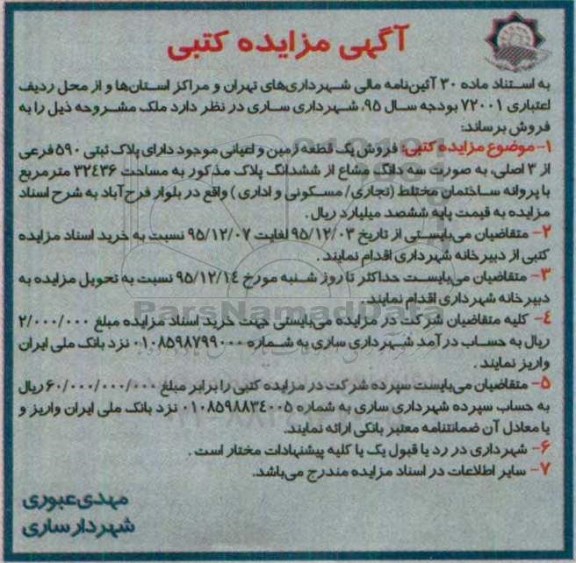 آگهی مزایده کتبی
به استناد ماده ۳۰ آئین‌نامه مالی شهرداری‌های تهران و مراکز استان‌ها و از محل ردیف
اعتباری ۷۲۰۰۱ بودجه سال ۹۵، شهرداری ساری در نظر دارد ملک مشروحه ذیل را به
فروش برساند:
۱- موضوع مزایده کتبی: فروش یک قطعه زمین و اعیانی موجود دارای پلاک ثبتی ۵۹۰ فرعی
از ۳ اصلی، به صورت سه دانگ مشاع از ششدانگ پلاک مذکور به مساحت ۳۲۴۳۶ مترمربع
با پروانه ساختمان مختلط (تجاری/ مسکونی و اداری) واقع در بلوار فرح‌آباد به شرح اسناد
مزایده به قیمت پایه ششصد میلیارد ریال.
۲- متقاضیان می‌بایستی از تاریخ ۹۵/۱۲/۰۳ لغایت ۹۵/۱۲/۰۷ نسبت به خرید اسناد مزایده
کتبی از دبیرخانه شهرداری اقدام نمایند.
۳- متقاضیان می‌بایست حداکثر تا روز شنبه مورخ ۹۵/۱۲/۱۴ نسبت به تحویل مزایده به
دبیرخانه شهرداری اقدام نمایند.
ParsNamadData
۴- کلیه متقاضیان شرکت در مزایده می‌بایستی جهت خرید اسناد مزایده مبلغ ۲/۰۰۰/۰۰۰
ریال به حساب درآمد شهرداری ساری به شماره ۰۱۰۸۵۹۸۷۹۹۰۰۰ نزد بانک ملی ایران
واریز نمایند.
۵- متقاضیان می‌بایست سپرده شرکت در مزایده کتبی را برابر مبلغ ۶۰/۰۰۰/۰۰۰/۰۰۰ ریال
به حساب سپرده شهرداری ساری به شماره ۰۱۰۸۵۹۸۸۳۴۰۰۵ نزد بانک ملی ایران واریز و
یا معادل آن ضمانتنامه معتبر بانکی ارائه نمایند.
۶- شهرداری در رد یا قبول یک یا کلیه پیشنهادات مختار است.
۷- سایر اطلاعات در اسناد مزایده مندرج می‌باشد.
مهدی عبوری
شهردار ساری